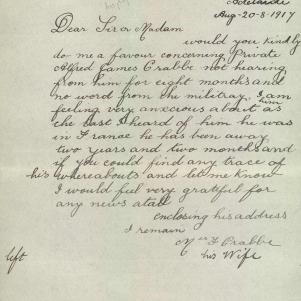 Adelaide
Aug-20-8-1917
Dear Sir or Madam
would you kindly
do me a favour concerning Private
Alfred James Crabbe not hearing
from him for eight months and
no word from the militray. I am
feeling very anxcious about as
him
the last I heard of him he was
in France he has been away
two years and two months and
if you could find any trace of
his whereabouts and let me know
I would feel very grateful for
any news atall
enclosing his address
I remain
Mrs F Crabbe
his Wife
left